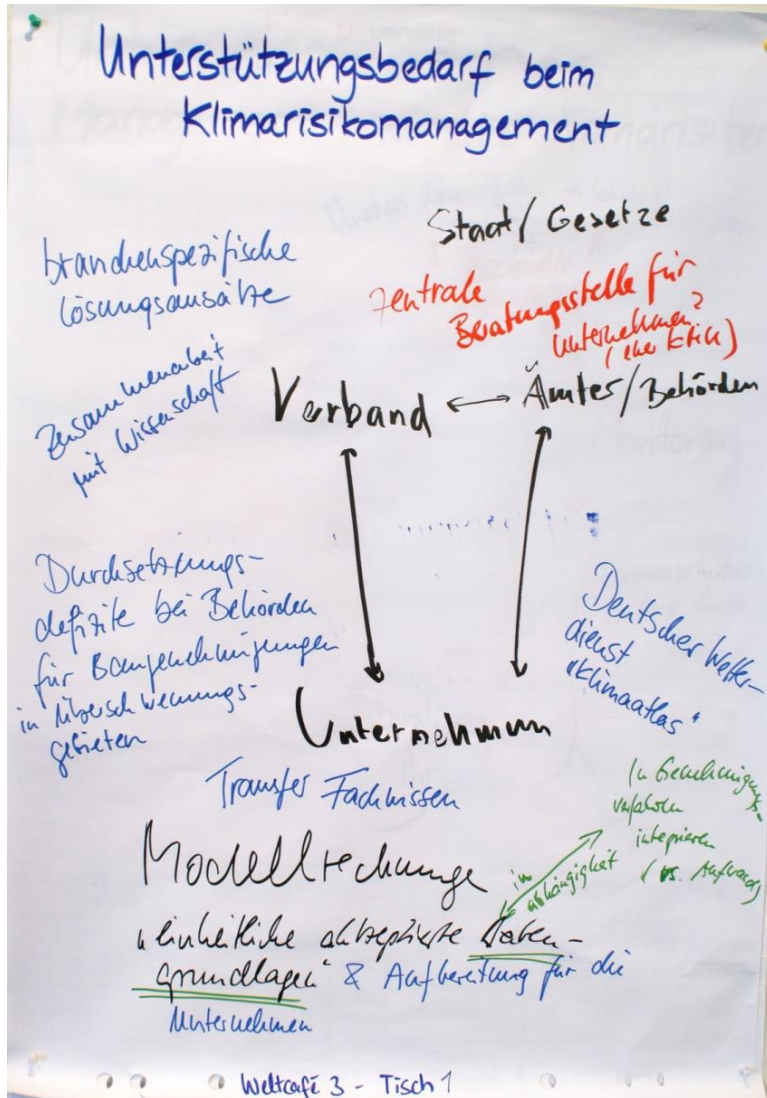 Unterstützungsbedarf beim
Klimarisikomanagement
Staat/Gesetze
branchenspezifische
Lösungsansätze
zentrale
Beratungsstelle für
Unternehmen?
(eher kritisch)
Zusammenarbeit
mit Wissenschaft
Verband
Ämter/Behörden
Durchsetzungs-
defizite bei Behörden
für Baugenehmigungen
in Überschwemmungs-
gebieten
Deutscher Wetter-
dienst
"Klimaatlas"
Unternehmen
Transfer Fachwissen
In Genehmigungs-
verfahren
integrieren
(vs. Aufwand)
in
abhängigkeit
Modellrechnunge
"einheitliche akzeptierte Daten-
grundlagen" & Aufbereitung für die
Unternehmen
Weltcafé 3 - Tisch 1